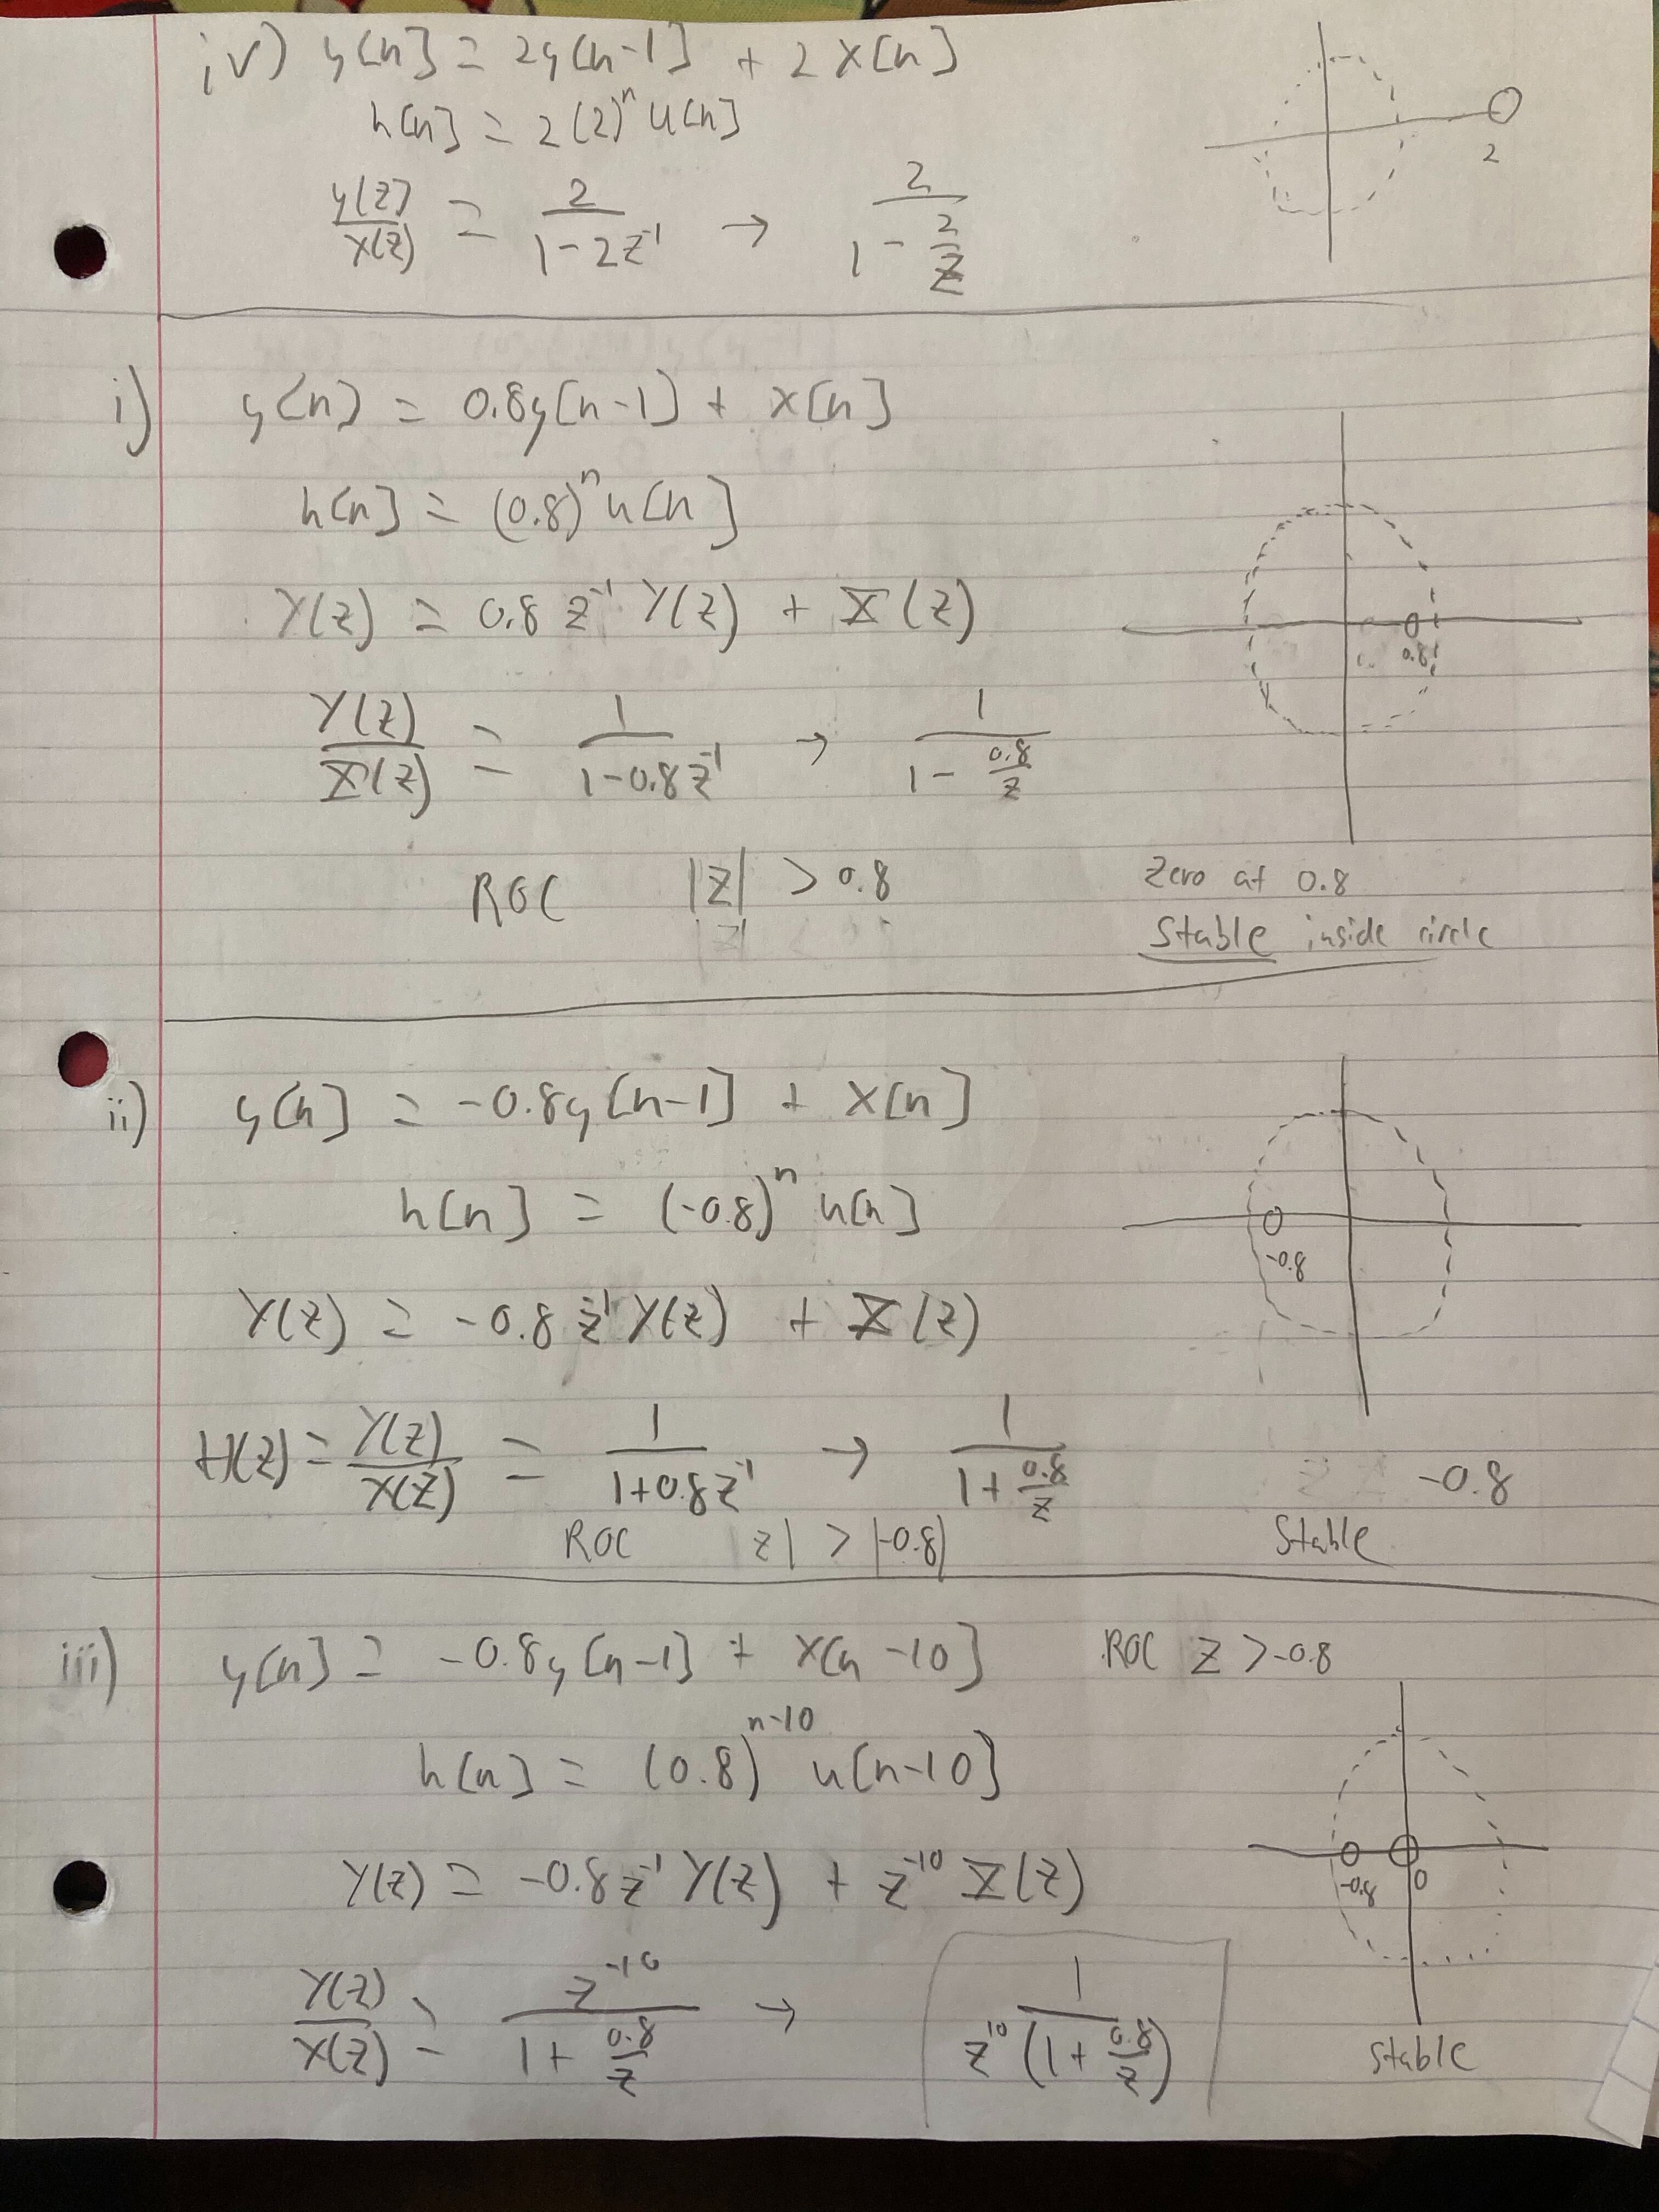 iv) y[n] = 2y[n-1] + 2x[n]
h[n] = 2(2)^n u[n]
2
y(z)/x(z) = 2/(1-2z^-1) → 2/(1 - 2/z)
i) y[n] = 0.8y[n-1] + x[n]
h[n] = (0.8)^n u[n]
Y(z) = 0.8 z^-1 Y(z) + X(z)
0.8
Y(z)/X(z) = 1/(1-0.8z^-1) → 1/(1 - 0.8/z)
ROC |z| > 0.8
Zero at 0.8
Stable inside circle
ii) y[n] = -0.8y[n-1] + x[n]
h[n] = (-0.8)^n u[n]
-0.8
Y(z) = -0.8 z^-1 Y(z) + X(z)
H(z) = Y(z)/X(z) = 1/(1+0.8z^-1) → 1/(1 + 0.8/z)
-0.8
ROC |z| > |-0.8|
Stable
iii) y[n] = -0.8y[n-1] + x[n-10] ROC z > -0.8
h[n] = (0.8)^n-10 u[n-10]
Y(z) = -0.8z^-1 Y(z) + z^-10 X(z)
-0.8 0
Y(z)/X(z) = z^-10/(1 + 0.8/z) → 1/(z^10 (1 + 0.8/z))
Stable